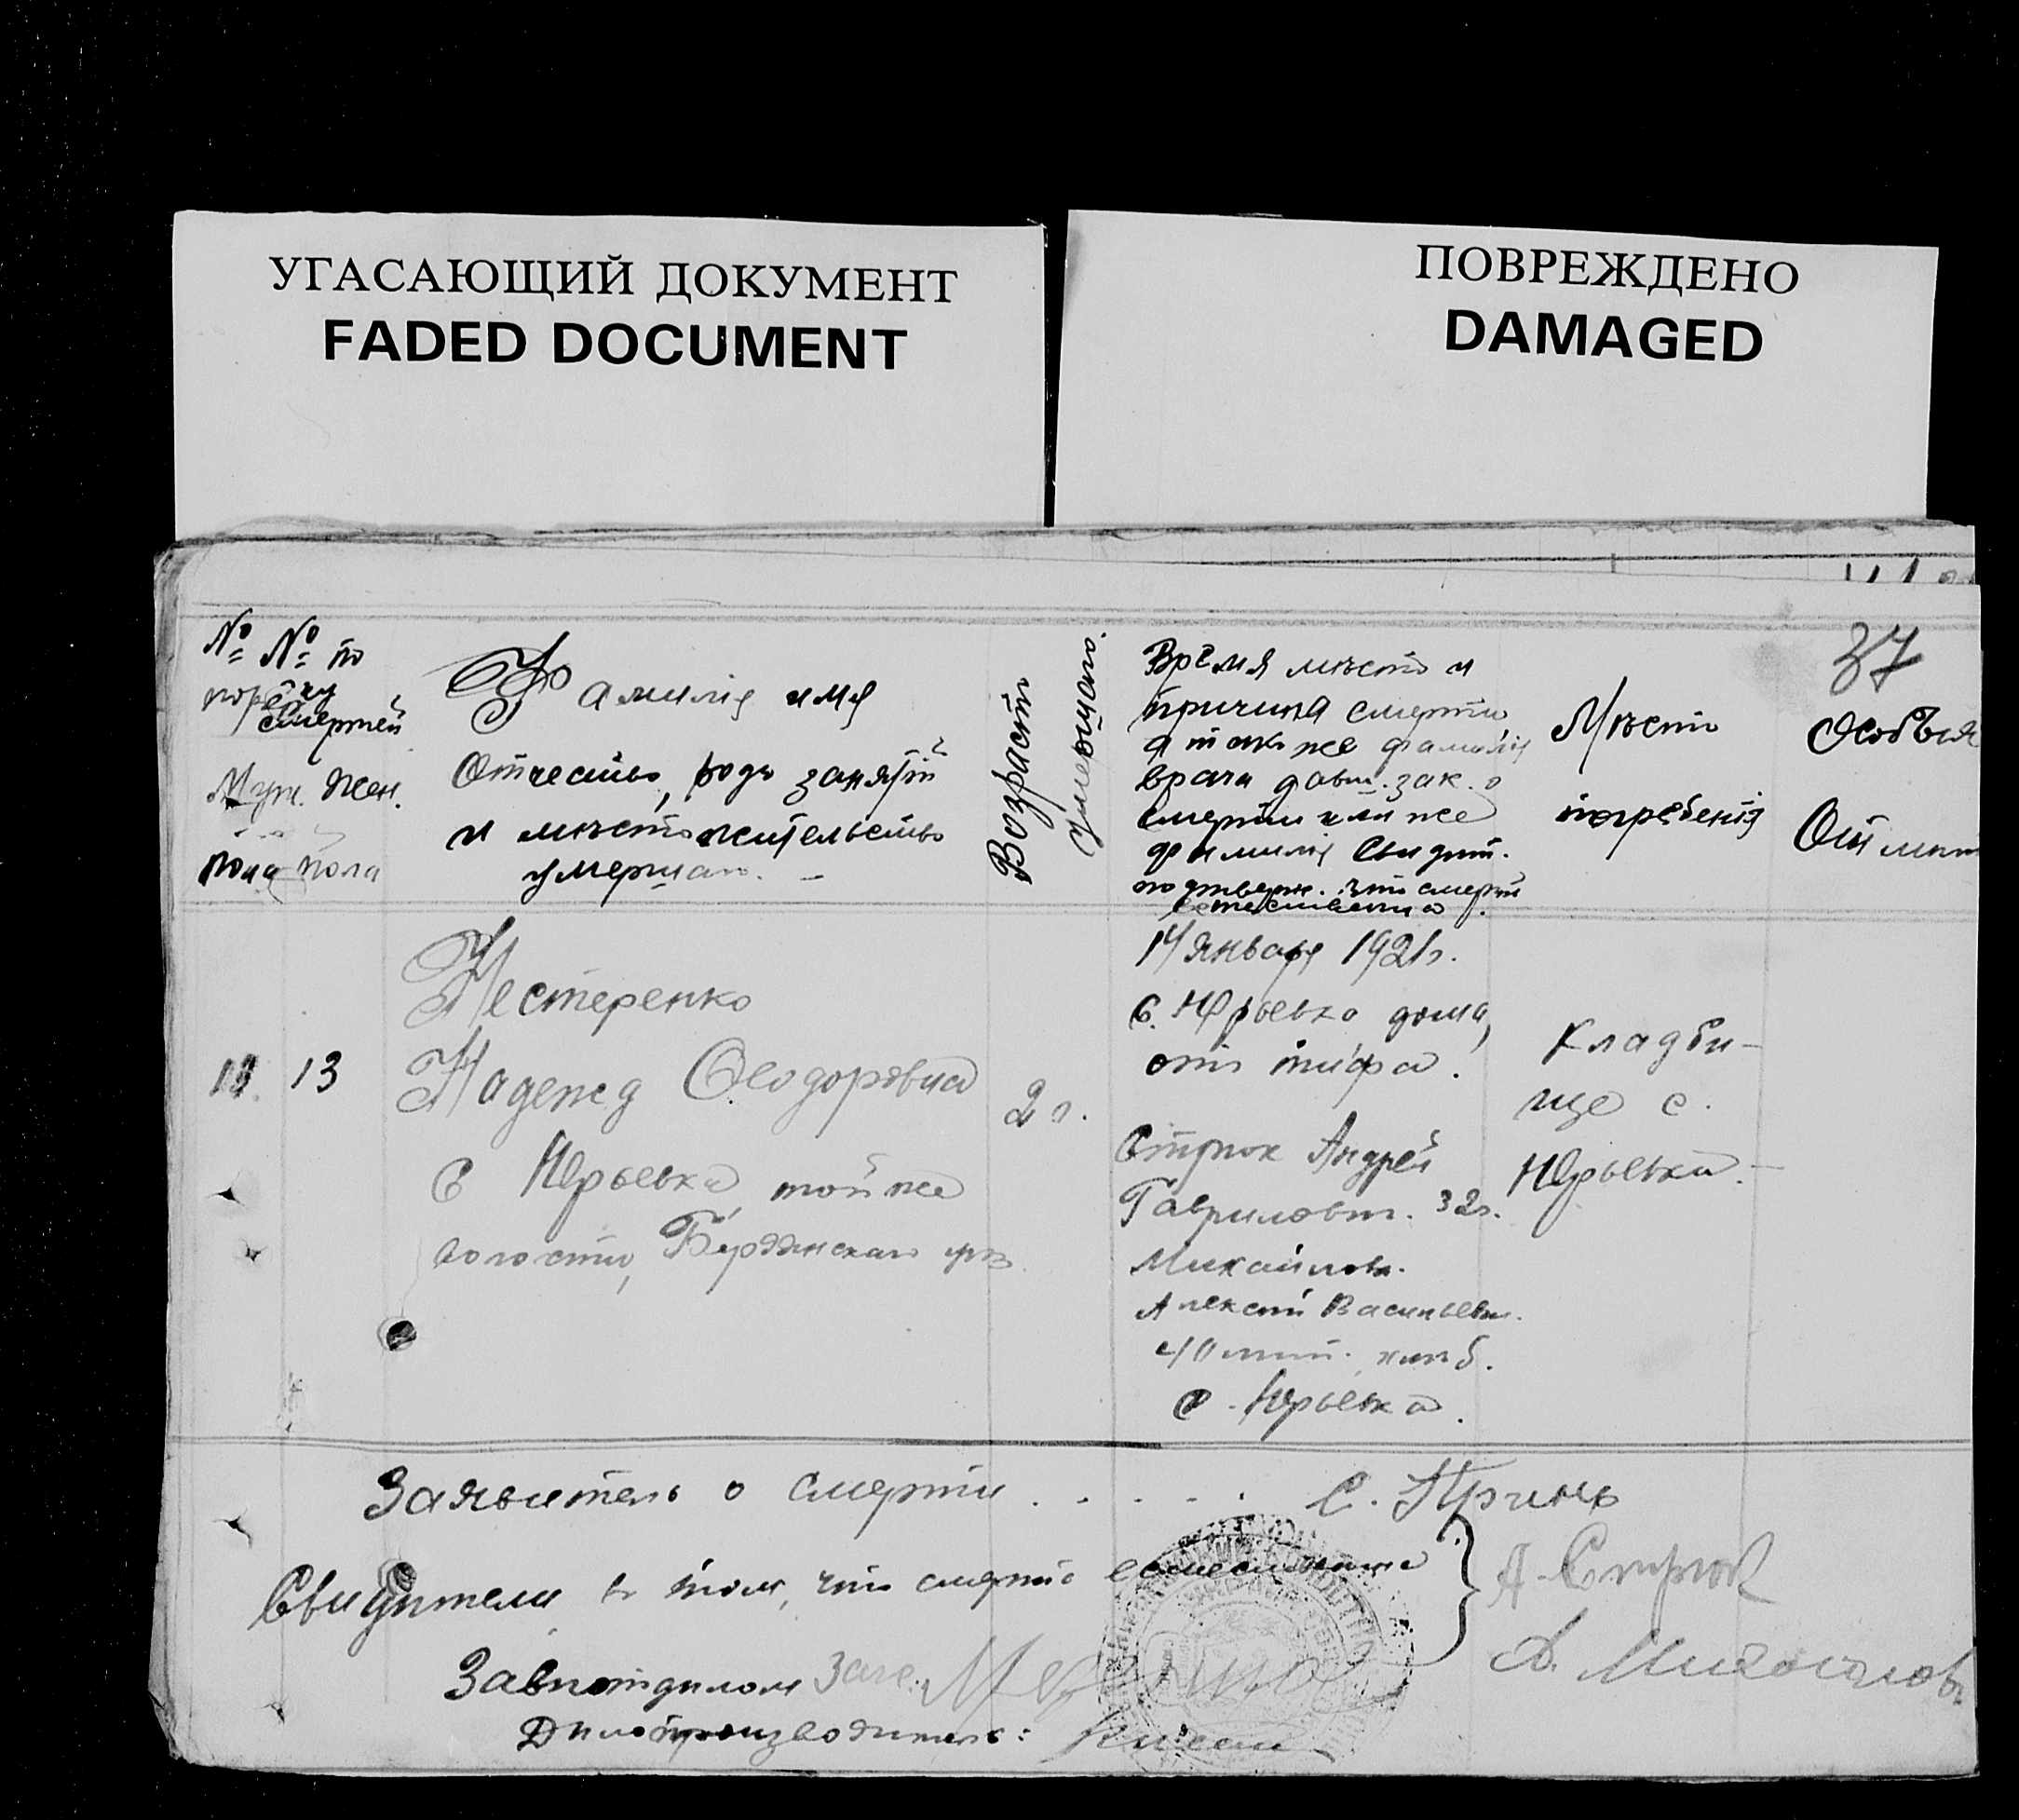 УГАСАЮЩИЙ ДОКУМЕНТ
FADED DOCUMENT
ПОВРЕЖДЕНО
DAMAGED
37
№ № по
порядку
смертей
Муж. Жен.
пола пола
Фамилія имя
Отчество, родъ занятій
и мѣстожительство
умершаго. –
Возрастъ
умершаго.
Время мѣсто и
причина смерти
а также фамилія
врача давш. зак. о
смерти или же
фамилія Свидѣт.
подтверж. что смерть
естественна.
Мѣсто
погребенія
Особыя
Отмѣт
13
Нестеренко
Надежд Феодоровна
с Юрьевка той же
волости, Бердянскаго уѣз
2 г.
14 января 1921 г.
с. Юрьевка дома,
отъ тифа.
Стрюк Андрей
Гаврилович. 32 г.
Михайлов.
Алексѣй Васильев.
40 лѣт. хлѣб.
с. Юрьевка.
Кладби-
ще с.
Юрьевки. –
Заявитель о смерти . . . . .
Свидѣтели в том, что смерть естественна
А. Стрюк
А. Михайлов
Завѣотдѣлом
Дѣлопроизводитель: